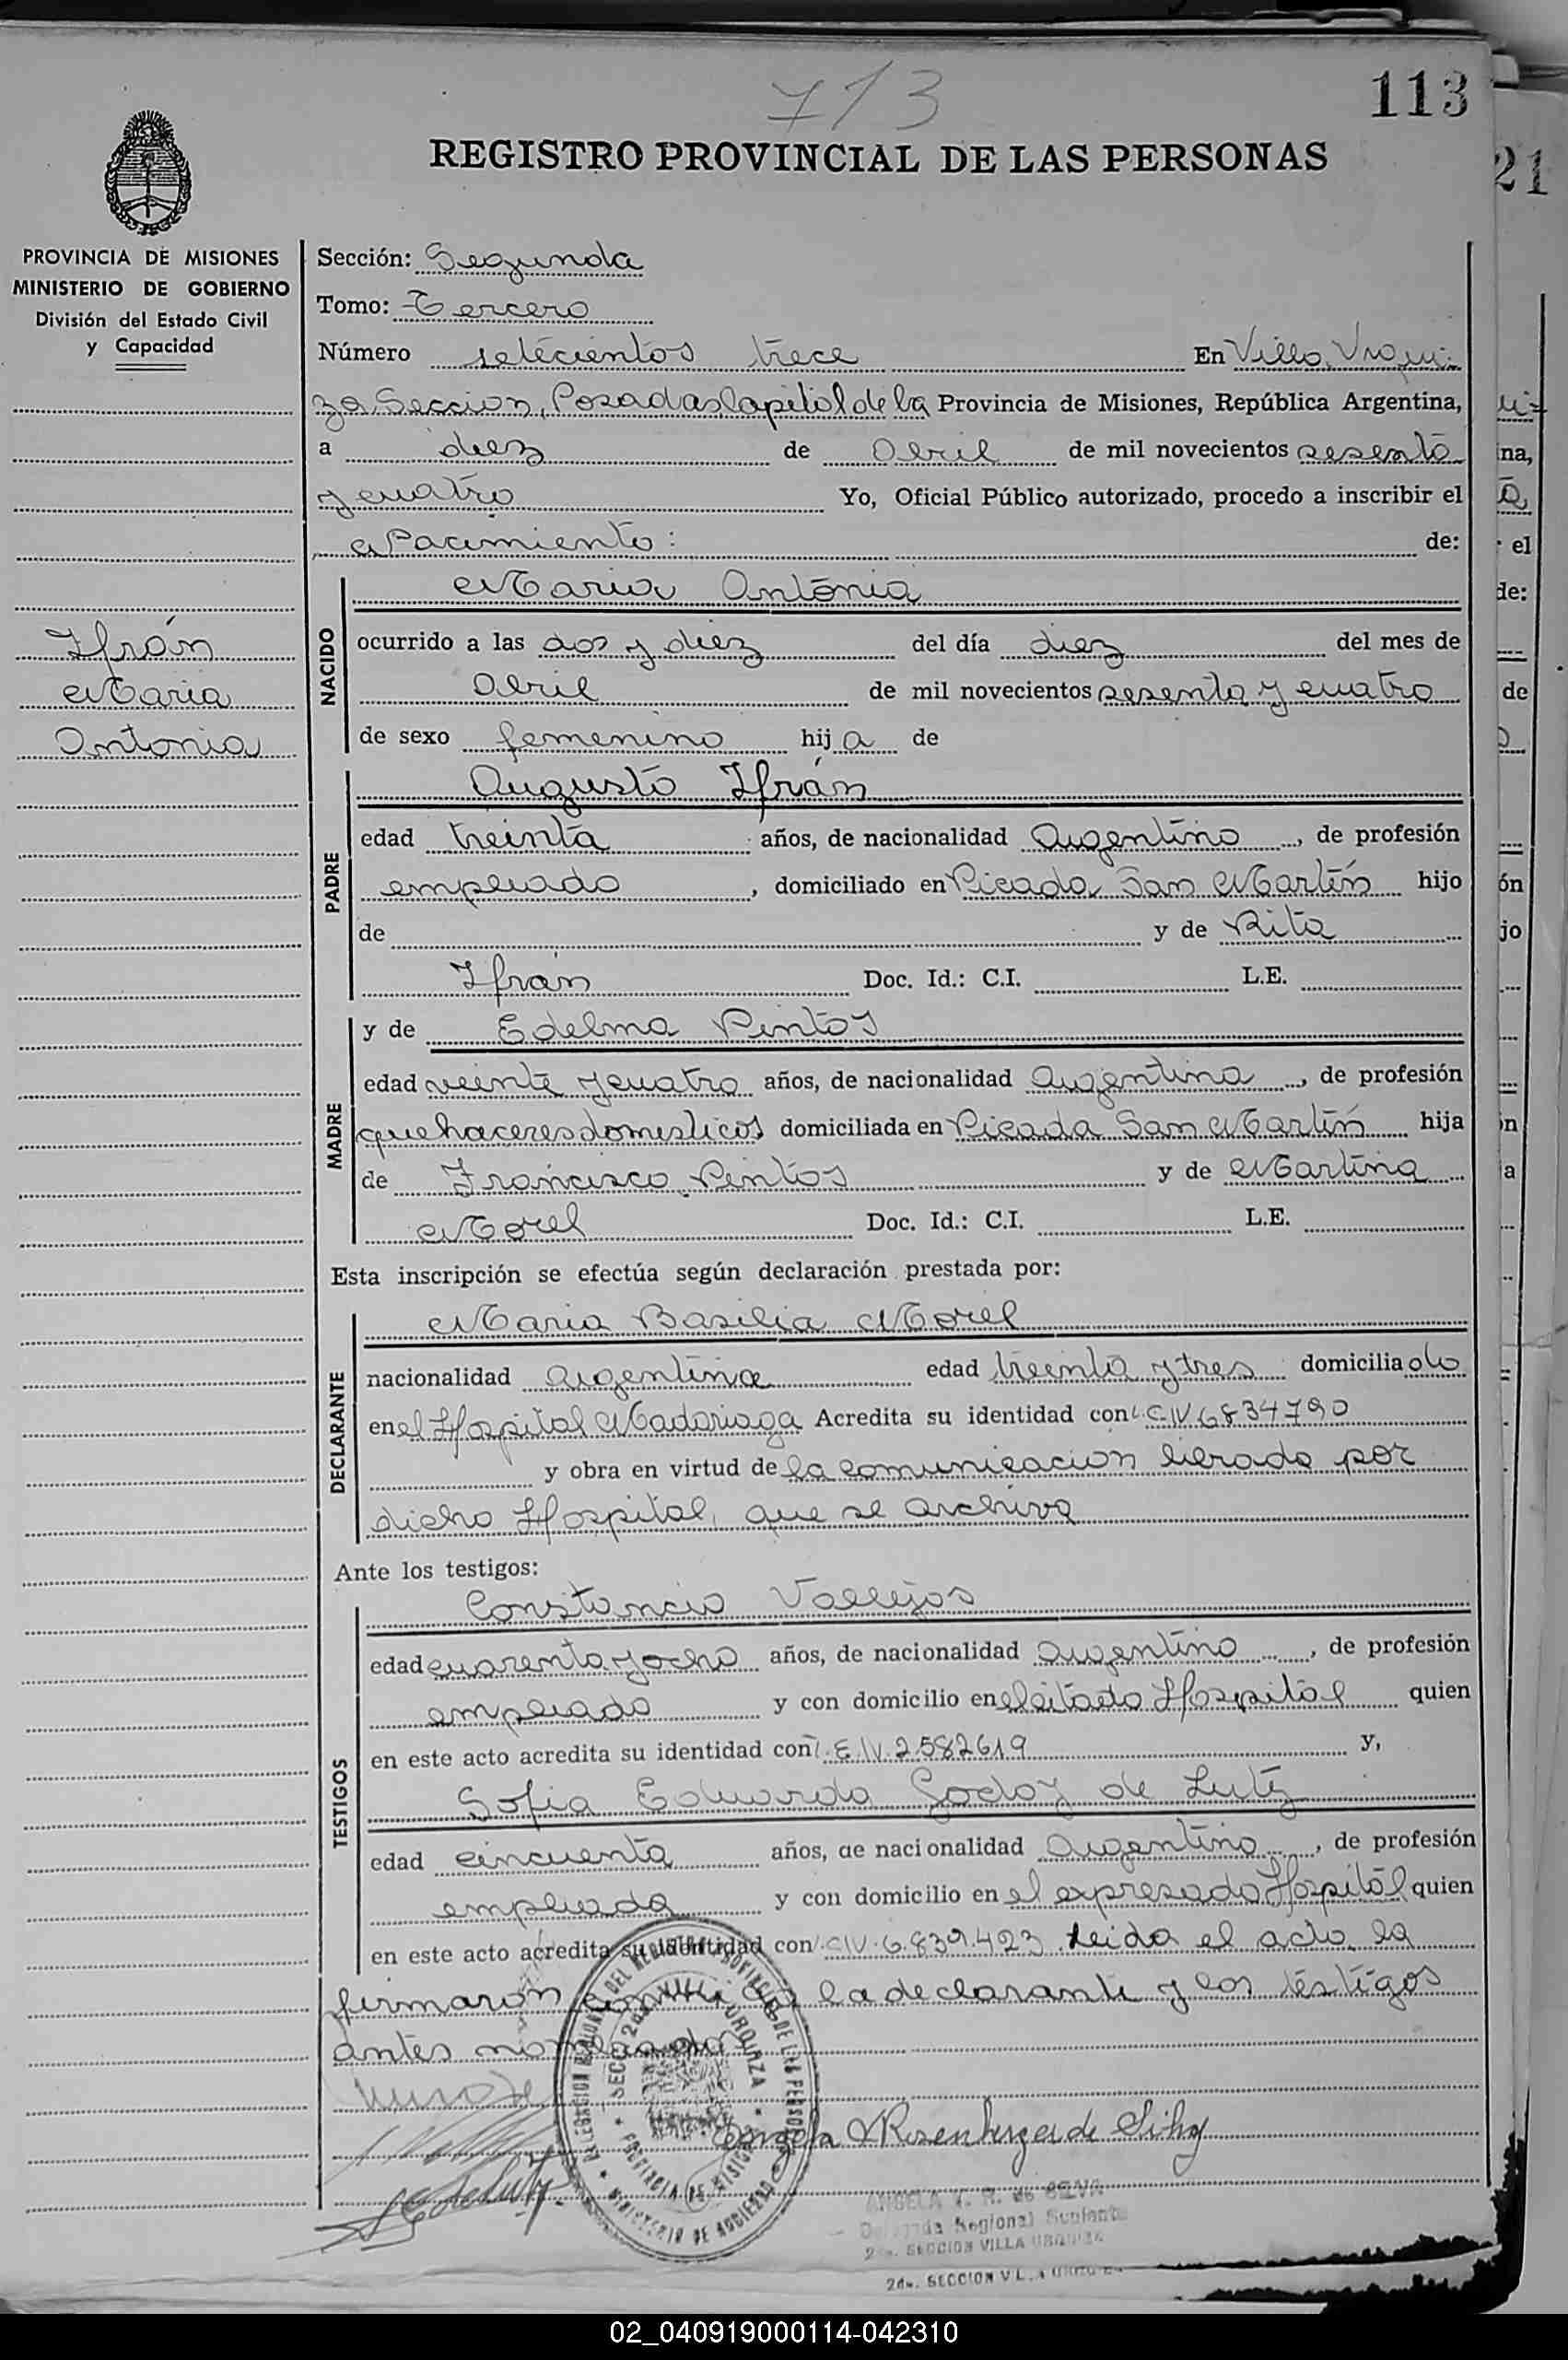 713
113
REGISTRO PROVINCIAL DE LAS PERSONAS
21
PROVINCIA DE MISIONES
MINISTERIO DE GOBIERNO
División del Estado Civil
y Capacidad
Ifrán
Maria
Antonia
Sección: Segunda
Tomo: Tercero
Número setecientos trece En Villa Urqui-
za, Seccion, Posadas Capital de la Provincia de Misiones, República Argentina,
a diez de Abril de mil novecientos sesenta
y cuatro Yo, Oficial Público autorizado, procedo a inscribir el
Nacimiento: de:
NACIDO
Maria Antonia
ocurrido a las dos y diez del día diez del mes de
Abril de mil novecientos sesenta y cuatro
de sexo femenino hija de
PADRE
Augusto Ifrán
edad treinta años, de nacionalidad Argentino, de profesión
empleado, domiciliado en Picada San Martín hijo
de y de Rita
Ifrán Doc. Id.: C.I. L.E.
MADRE
y de Edelma Pintos
edad veinte y cuatro años, de nacionalidad Argentina, de profesión
quehaceres domesticos domiciliada en Picada San Martín hija
de Francisco Pintos y de Martina
Morel Doc. Id.: C.I. L.E.
Esta inscripción se efectúa según declaración prestada por:
DECLARANTE
Maria Basilia Morel
nacionalidad argentina edad treinta y tres domiciliado
en el Hospital Madariaga Acredita su identidad con L.C. Nº 6834790
y obra en virtud de la comunicacion librada por
dicho Hospital, que se archiva
Ante los testigos:
TESTIGOS
Constancio Vallejos
edad cuarenta y ocho años, de nacionalidad Argentino, de profesión
empleado y con domicilio en el citado Hospital quien
en este acto acredita su identidad con L.E. Nº 2582619 y,
Sofia Eduarda Godoy de Lutz
edad cincuenta años, de nacionalidad Argentina, de profesión
empleada y con domicilio en el expresado Hospital quien
en este acto acredita su identidad con L.C. Nº 6.839.423. Leida el acta, la
firmaron conmigo la declarante y los testigos
antes nombrados
Angela V Rosenberger de Silva
ANGELA V. R. de SILVA
Delegada Regional Suplente
2da. SECCION VILLA URQUIZA
2da. SECCION VILLA URQUIZA
02_040919000114-042310